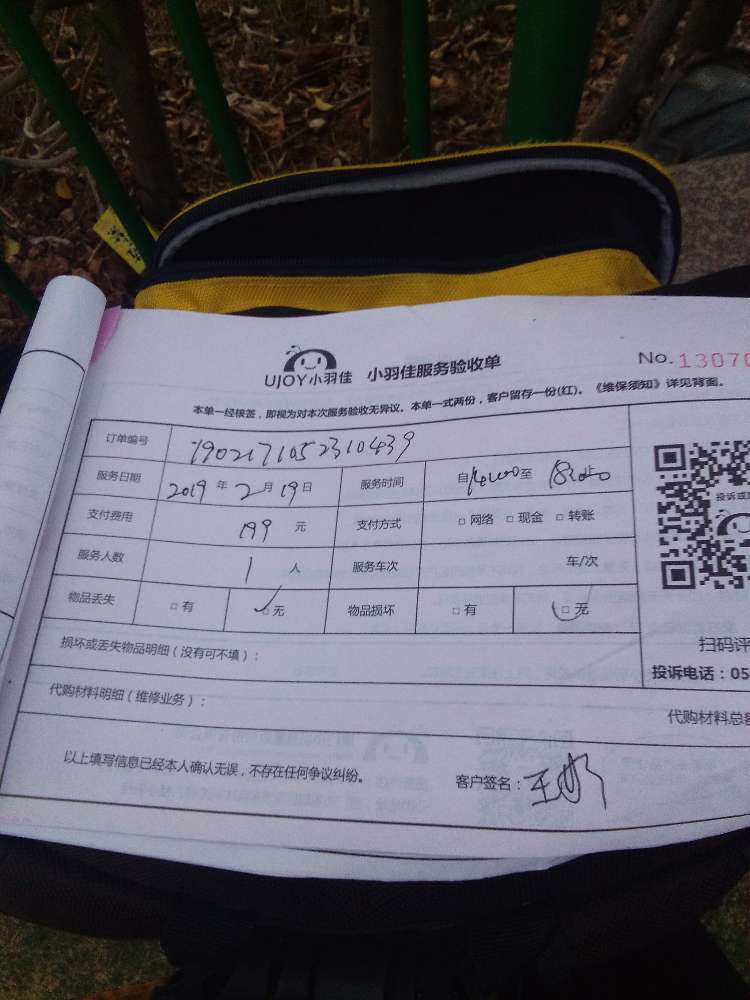 UJOY小羽佳 小羽佳服务验收单 No. 13070
本单一经核签，即视为对本次服务验收无异议。本单一式两份，客户留存一份(红)。《维保须知》详见背面。
订单编号 1902171052310439
服务日期 2019 年 2 月 19 日 服务时间 自 14:00 至 18:00
支付费用 199 元 支付方式 □ 网络 □ 现金 □ 转账
服务人数 1 人 服务车次 车/次
物品丢失 □ 有 □ 无 物品损坏 □ 有 □ 无
投诉或
扫码评
损坏或丢失物品明细（没有可不填）：
投诉电话：05
代购材料明细（维修业务）：
代购材料总额
以上填写信息已经本人确认无误，不存在任何争议纠纷。
客户签名：王